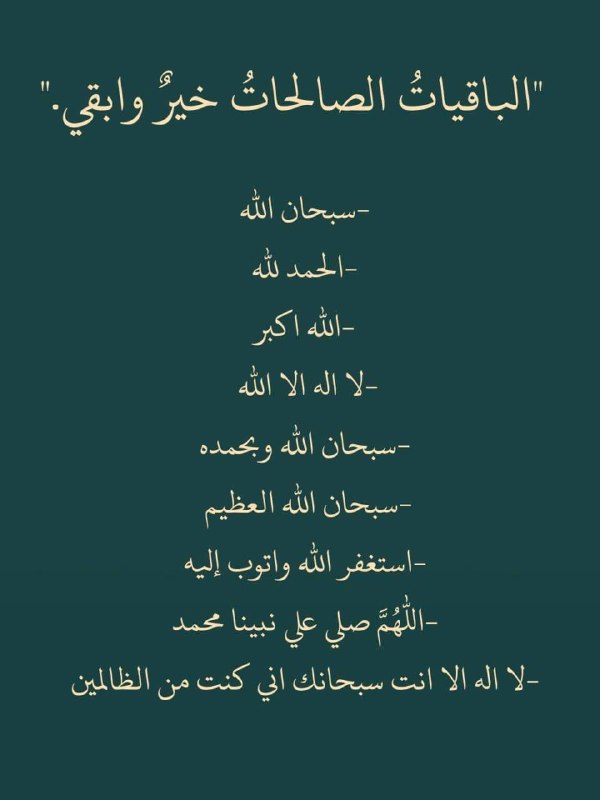 "الباقياتُ الصالحاتُ خيرٌ وابقي."
-سبحان الله
-الحمد لله
-الله اكبر
-لا اله الا الله
-سبحان الله وبحمده
-سبحان الله العظيم
-استغفر الله واتوب إليه
-اللّهُمَّ صلي علي نبينا محمد
-لا اله الا انت سبحانك اني كنت من الظالمين